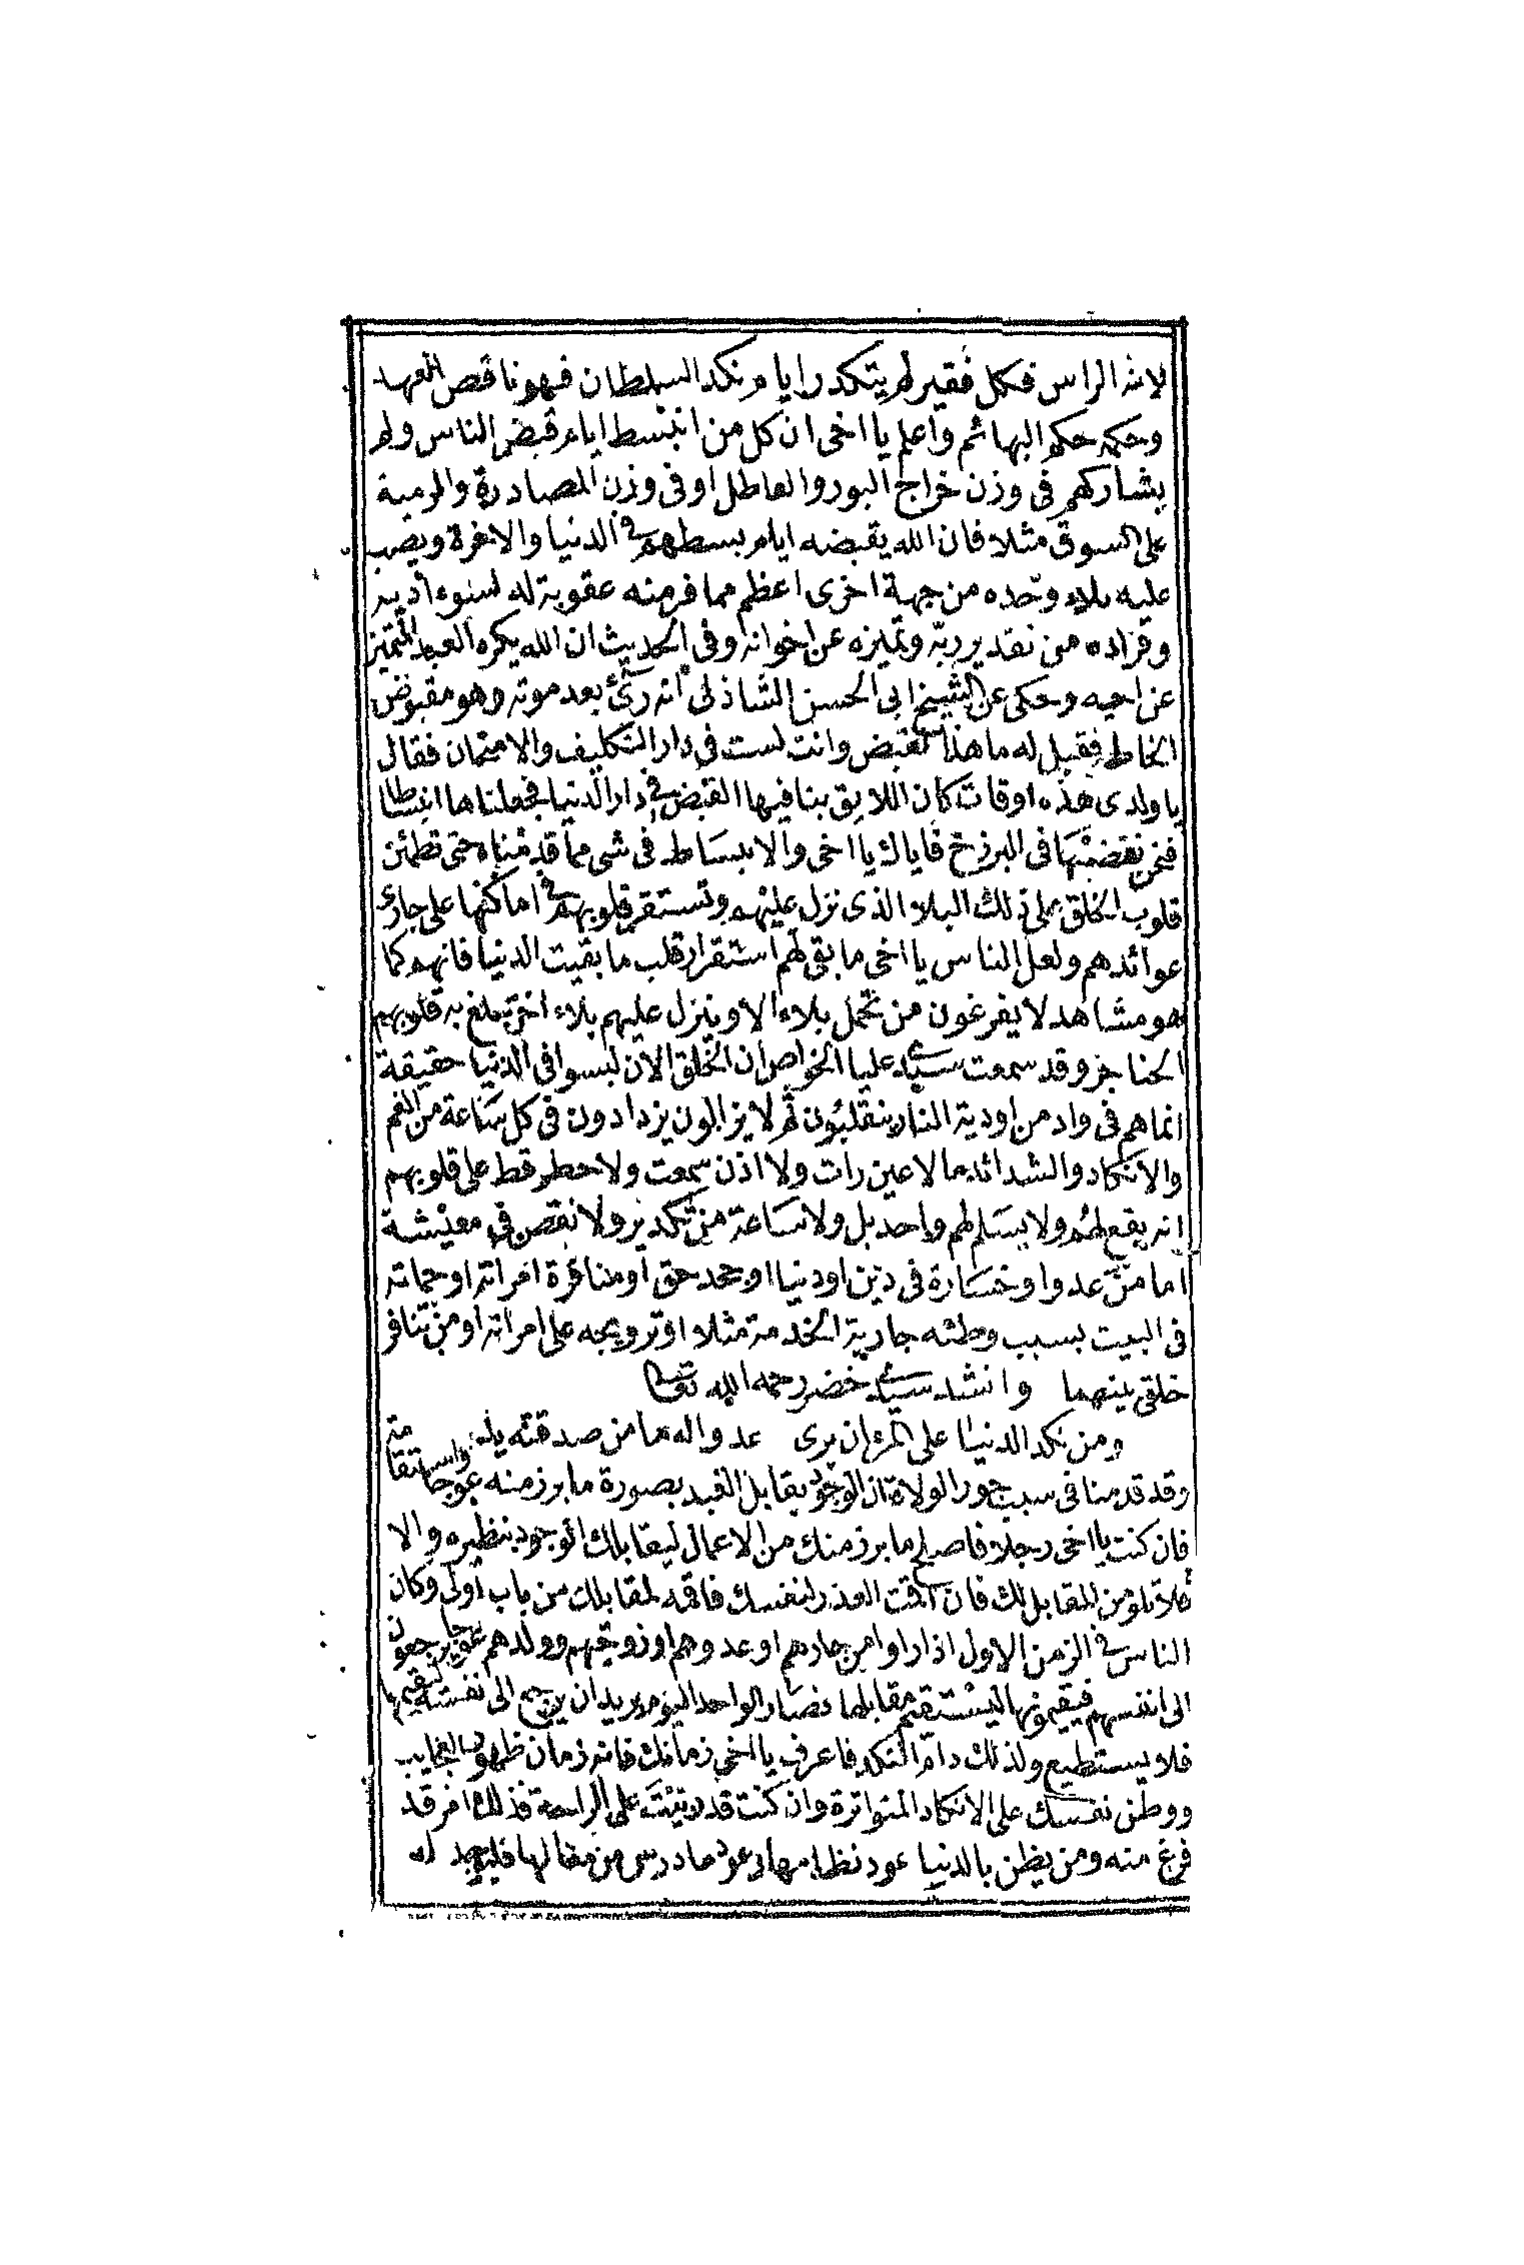 لانه الراس فكل فقير لم يتكدر ايام نكد السلطان فهو ناقص المقام
وحكمه حكم البهائم واعلم يا اخى ان كل من انبسط ايام قبض الناس ولم
يشاركهم فى وزن خراج البور والعاطل او فى وزن المصادرة والرمية
على السوق مثلا فان الله يقبضه ايام بسطهم فى الدنيا والاخرة ويصب
عليه بلاء وحده من جهة اخرى اعظم مما فر منه عقوبة له لسوء ادبه
وفراده من تقدير ربه وتميزه عن اخوانه وفى الحديث ان الله يكره العبد المتميز
عن اخيه وحكى عن الشيخ ابى الحسن الشاذلى انه رئى بعد موته وهو مقبوض
الخاطر فقيل له ما هذا القبض وانت لست فى دار التكليف والامتحان فقال
يا ولدى هذه اوقات كان اللايق بنا فيها القبض فى دار الدنيا فجعلناها انبساطا
فنحن نقضيها فى البرزخ فاياك يا اخى والانبساط فى شى مما قدمناه حتى تطمئن
قلوب الخلق على ذلك البلاء الذى نزل عليهم وتستقر قلوبهم فى اماكنها على جارى
عوائدهم ولعل الناس يا اخى ما بقى لهم استقرار قلب ما بقيت الدنيا فانهم كما
هو مشاهد لا يفرغون من تحمل بلاء الا وينزل عليهم بلاء اخر تبلغ به قلوبهم
الحناجر وقد سمعت سيدى عليا الخواص ان الخلق الان ليسوا فى الدنيا حقيقة
انما هم فى واد من اودية النار ينقلبون ثم لا يزالون يزدادون فى كل ساعة من الغم
والانكاد والشدائد ما لا عين رات ولا اذن سمعت ولا خطر قط على قلوبهم
انه يقع لهم ولا يسلم لهم واحد بل ولا ساعة من تكدير ولا نقص فى معيشة
اما من عدو او خسارة فى دين او دنيا او جحد حق او منافرة امراته او حماته
فى البيت بسبب وطئه جارية الخدمة مثلا او تزويجه على امراته او من تنافر
خلقى بينهما وانشد سيدى خضر رحمه الله تعالى
ومن نكد الدنيا على المرء ان يرى عدوا له ما من صداقته بد
وقد قدمنا فى سبب جور الولاة ان الوجود يقابل العبد بصورة ما برز منه عوجا واستقامة
فان كنت يا اخى رجلا فاصلح ما برز منك من الاعمال ليقابلك الوجود بنظيره والا
فلا تلومن المقابل لك فان اقمت العذر لنفسك فاقمه لمقابلك من باب اولى وكان
الناس فى الزمن الاول اذا راوا من جارهم او عدوهم او زوجتهم وولدهم عوجا يرجعون
الى انفسهم فيقيمونها ليستقيم مقابلها فصار الواحد اليوم يريد ان يرجع الى نفسه ليقيمها
فلا يستطيع ولذلك دام النكد فاعرف يا اخى زمانك فانه زمان ظهور العجايب
ووطن نفسك على الانكاد المتواترة وان كنت قد بنيته على الراحة فذلك امر قد
فرغ منه ومن يظن بالدنيا عود نظامها وعود ما درس من معالها فليوجد له